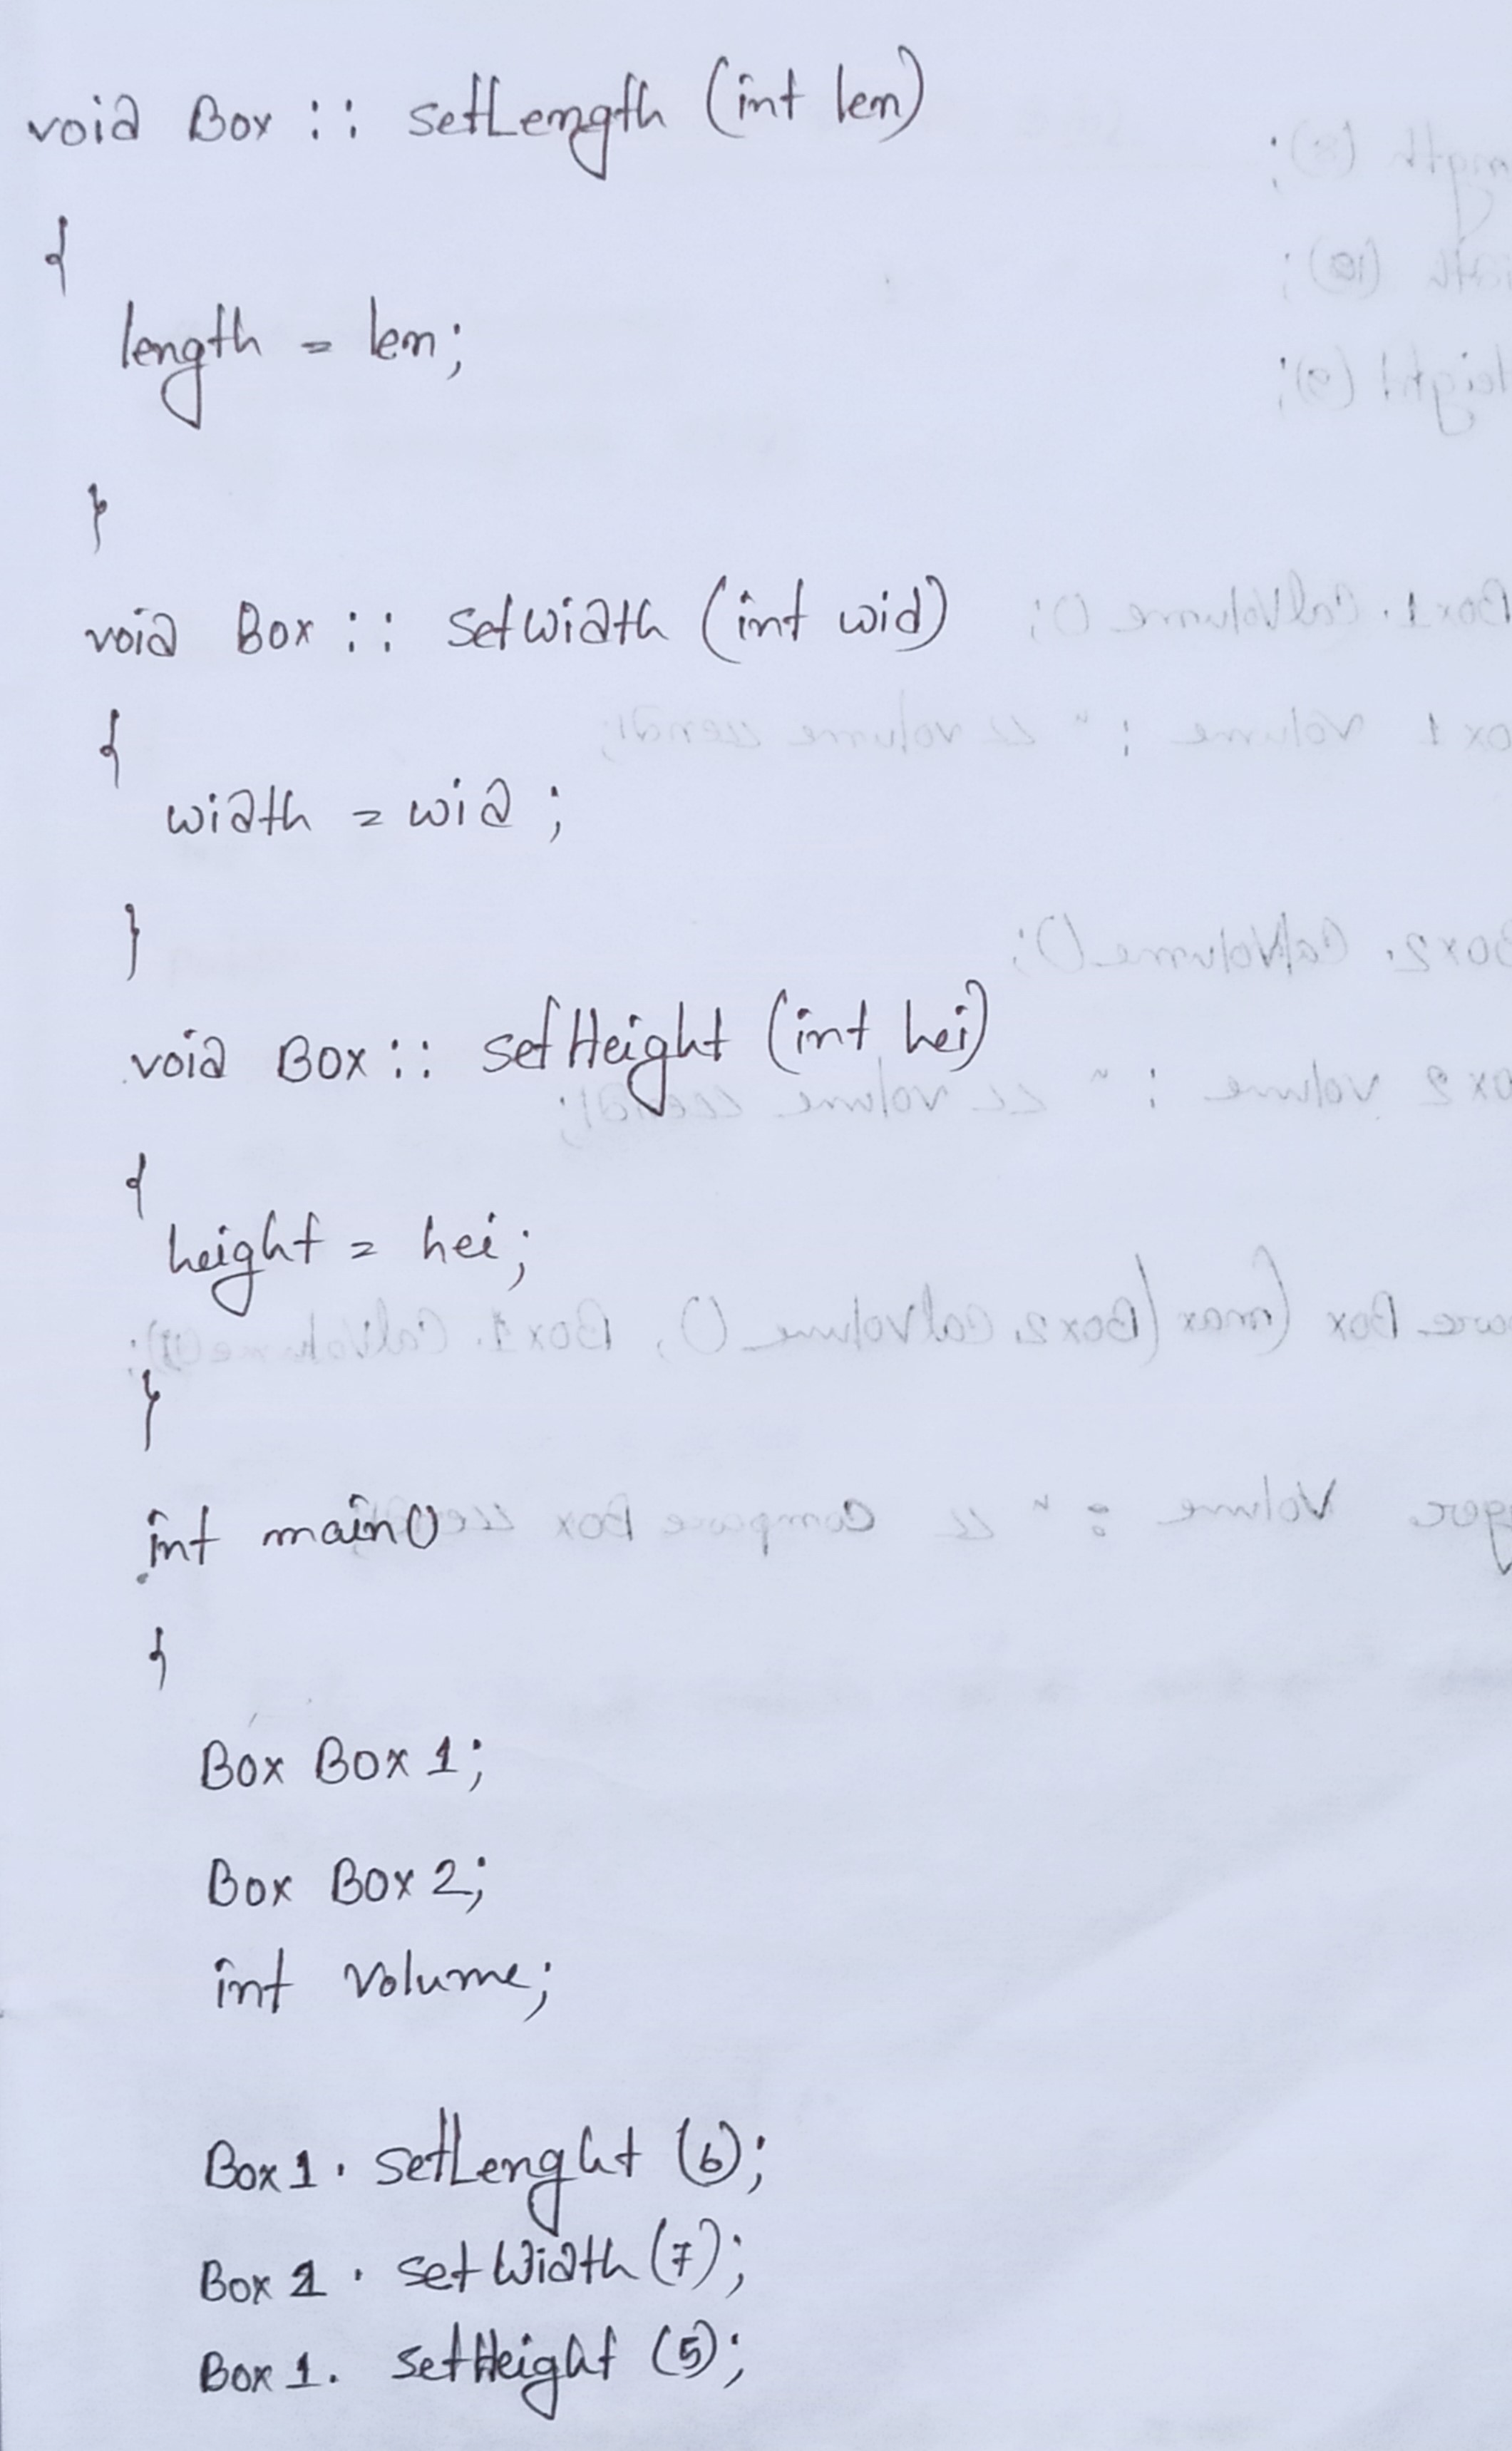 void Box :: setLength (int len)
{
length = len;
}
void Box :: setWidth (int wid)
{
width = wid;
}
void Box :: setHeight (int hei)
{
height = hei;
}
int main()
{
Box Box 1;
Box Box 2;
int volume;
Box 1. setLenght (6);
Box 1. setWidth (7);
Box 1. setHeight (5);